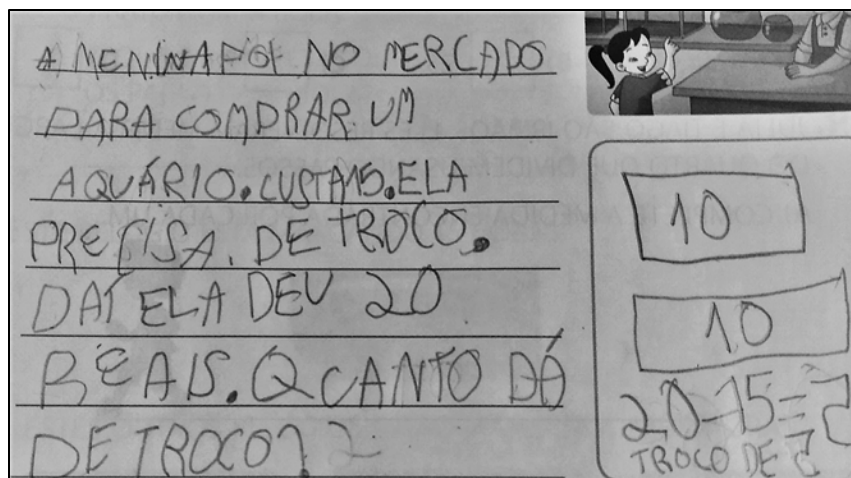 A MENINA FOI NO MERCADO
PARA COMPRAR UM
AQUÁRIO. CUSTA 15. ELA
PRECISA. DE TROCO.
DAÍ ELA DEU 20
REAIS. QCANTO DÁ
DE TROCO?
10
10
20-15=5
TROCO DE 5